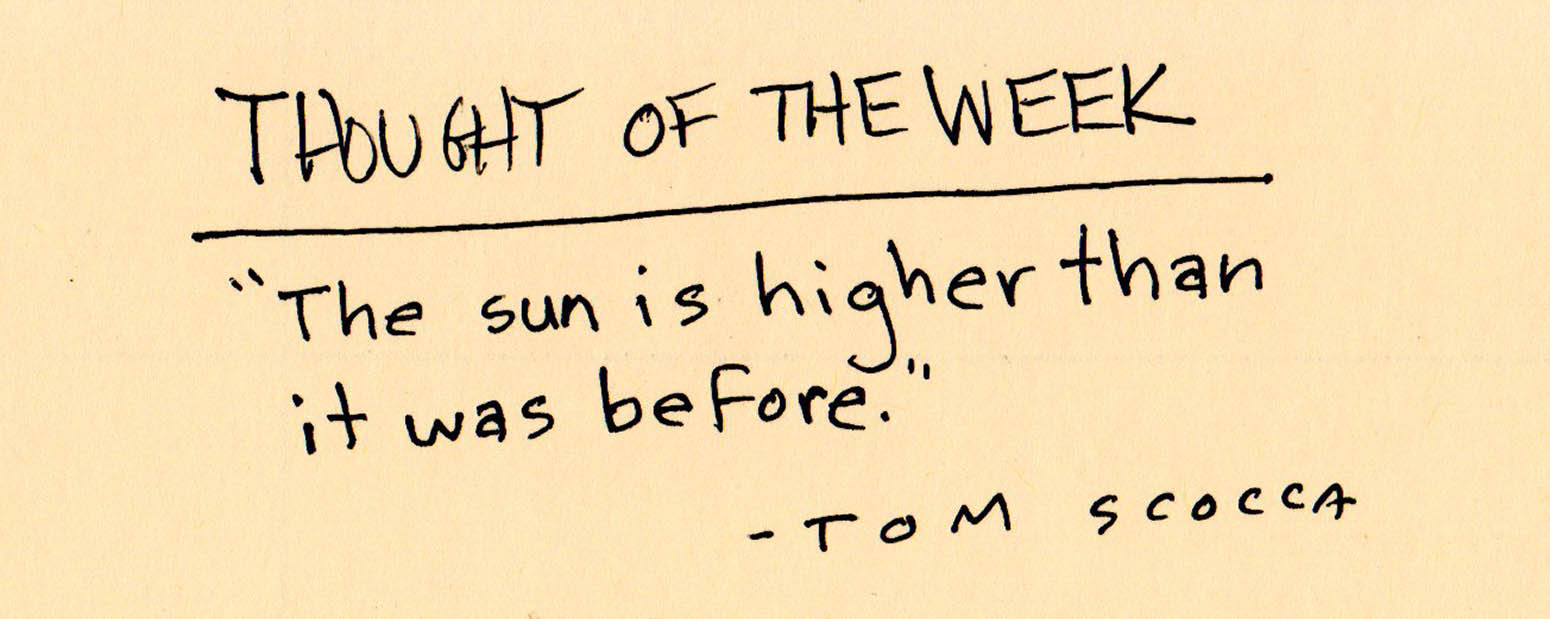 THOUGHT OF THE WEEK
"The sun is higher than
it was before."
- TOM SCOCCA